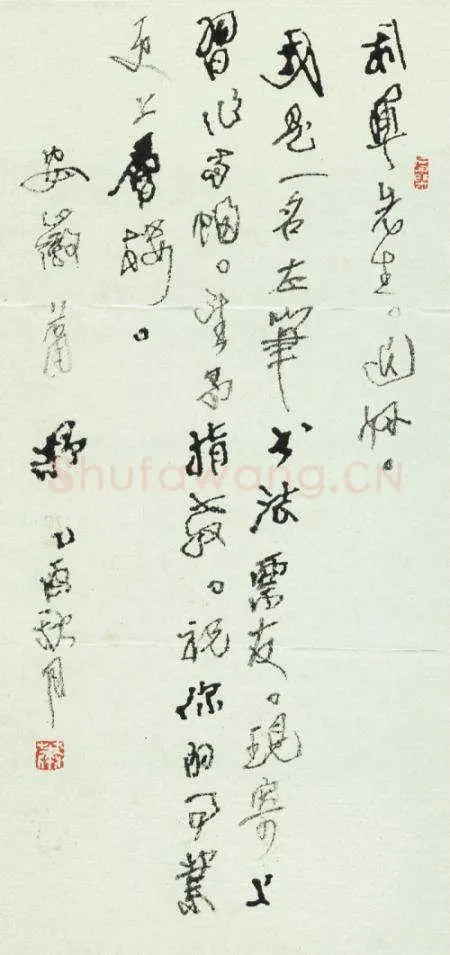 先生。近好。
我是一名左筆书法票友。现寄上
習作两幅。望多指教。祝你的事業
更上層楼。
安徽蕭 乙酉秋月
Shufawang.CN